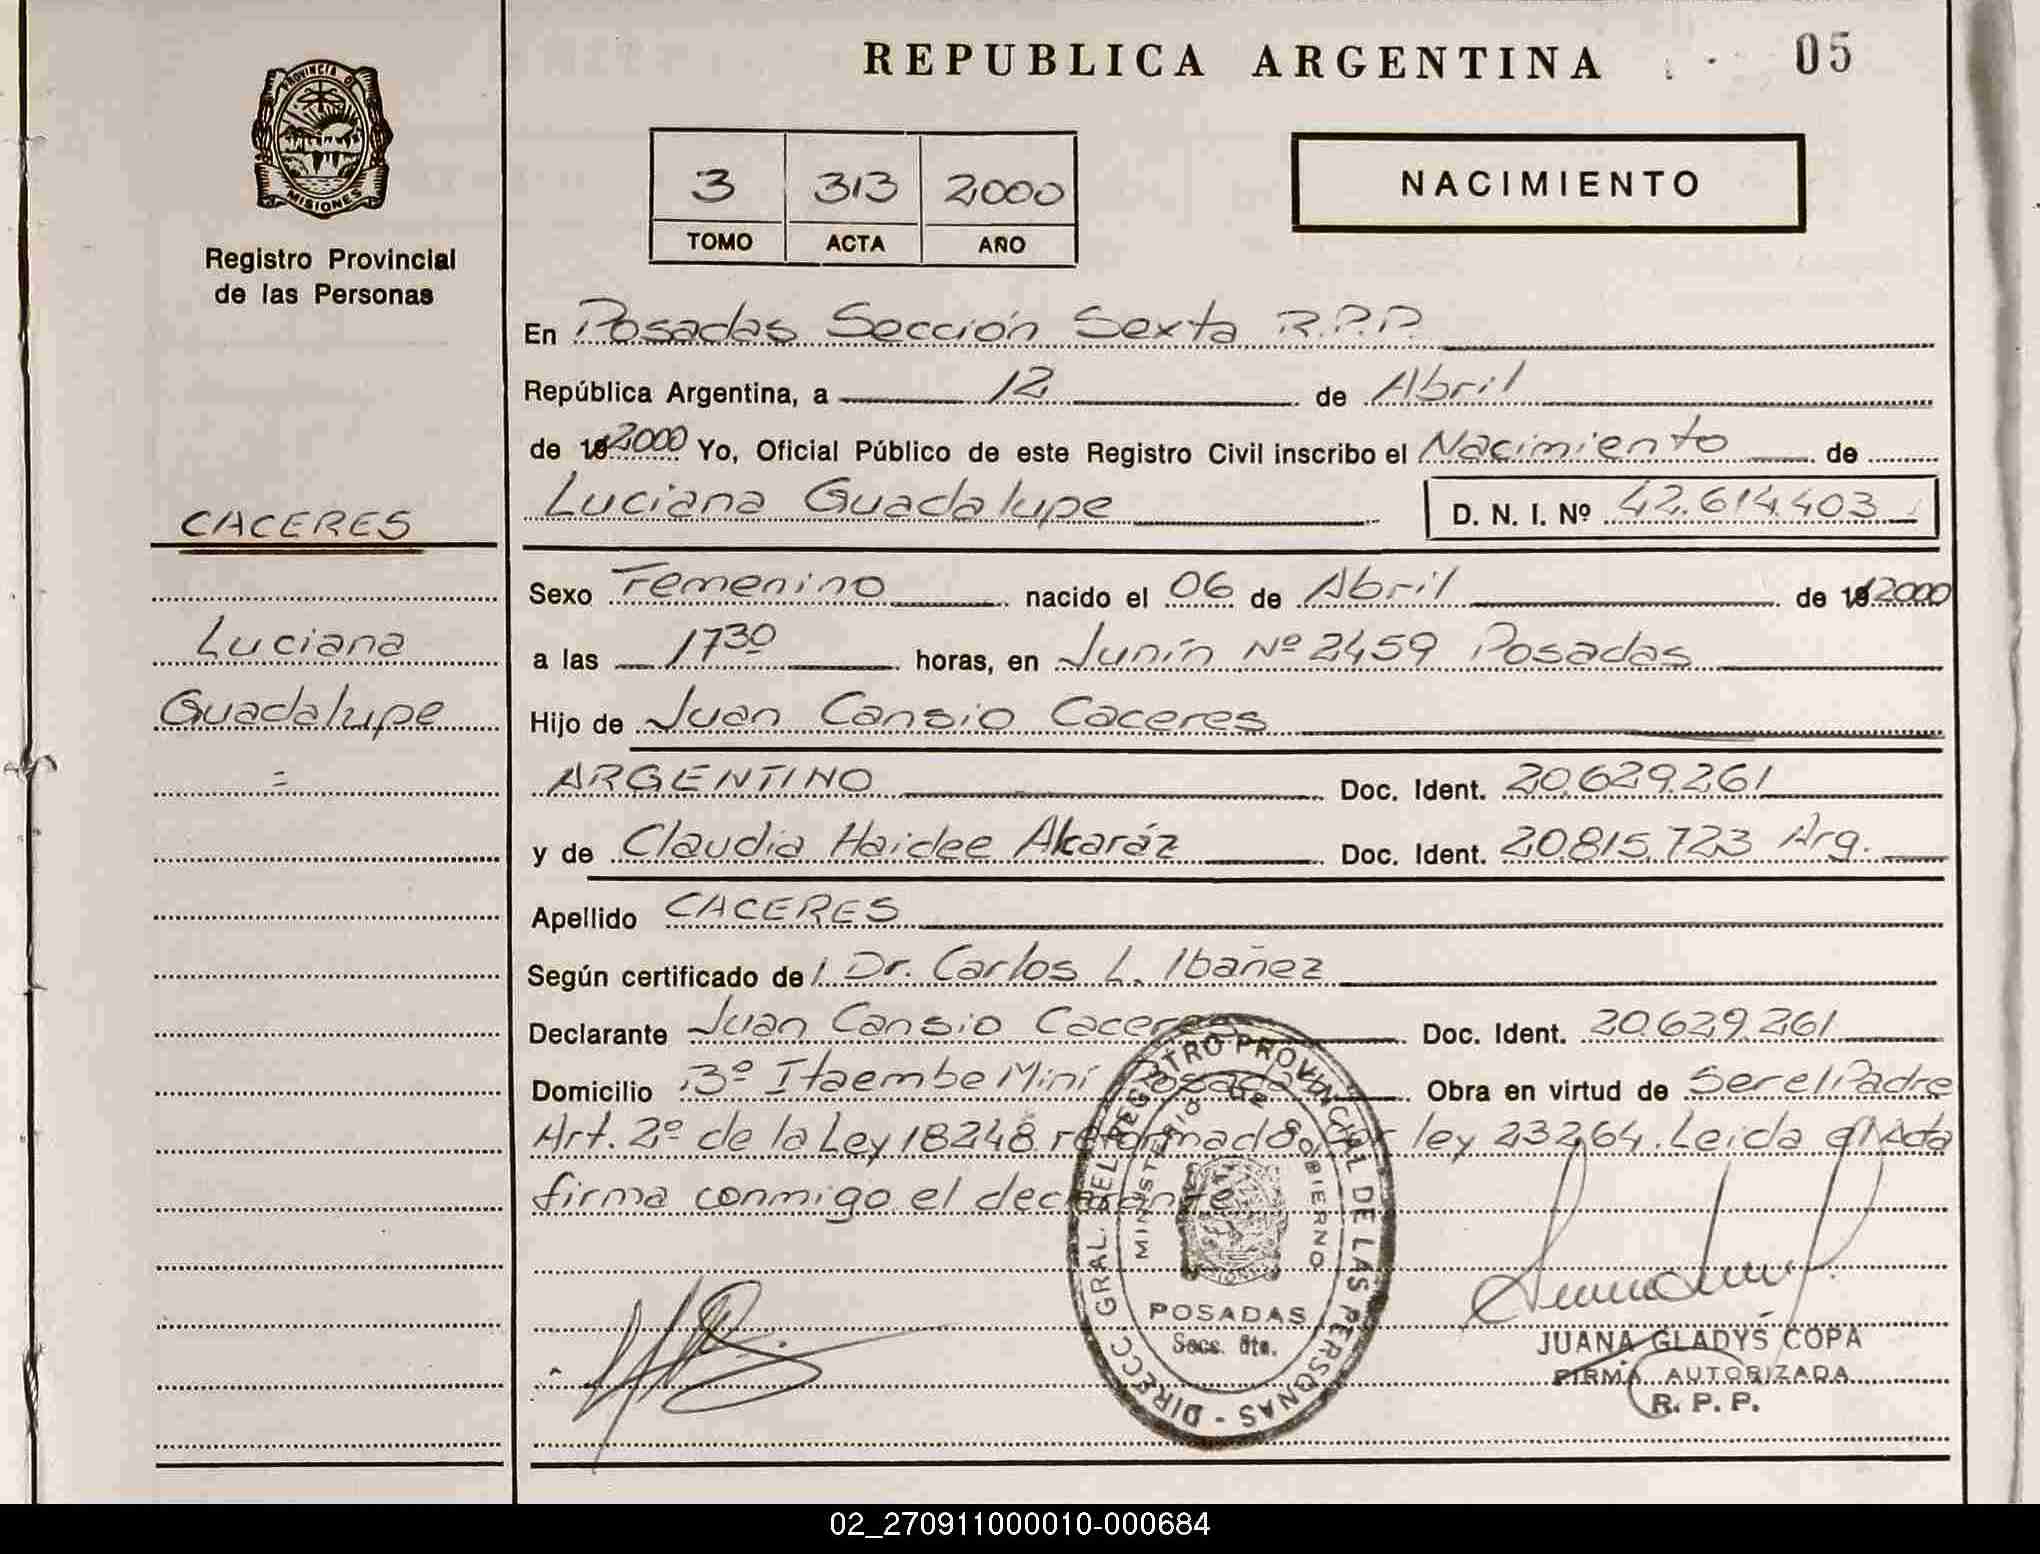 REPUBLICA ARGENTINA
05
PROVINCIA DE
MISIONES
Registro Provincial
de las Personas
3 313 2000
TOMO ACTA AÑO
NACIMIENTO
En Posadas Sección Sexta R.P.P.
República Argentina, a 12 de Abril
de 19 2000 Yo, Oficial Público de este Registro Civil inscribo el Nacimiento de
Luciana Guadalupe D. N. I. Nº 42.614.403
CACERES
Luciana
Guadalupe
=
Sexo Femenino nacido el 06 de Abril de 19 2000
a las 17 30 horas, en Junín Nº 2459 Posadas
Hijo de Juan Cansio Caceres
ARGENTINO Doc. Ident. 20.629.261
y de Claudia Haidee Alcaráz Doc. Ident. 20.815.723 Arg.
Apellido CACERES
Según certificado de Dr. Carlos L. Ibañez
Declarante Juan Cansio Caceres Doc. Ident. 20.629.261
Domicilio Bº Itaembe Miní Posadas Obra en virtud de Ser el Padre
Art. 2º de la Ley 18248 reformado por ley 23264. Leida el Acta
firma conmigo el declarante
DIRECC. GRAL. DEL REGISTRO PROVINCIAL DE LAS PERSONAS -
MINISTERIO DE GOBIERNO
POSADAS
Secc. 6ta.
JUANA GLADYS COPA
FIRMA AUTORIZADA
R. P. P.
02_270911000010-000684